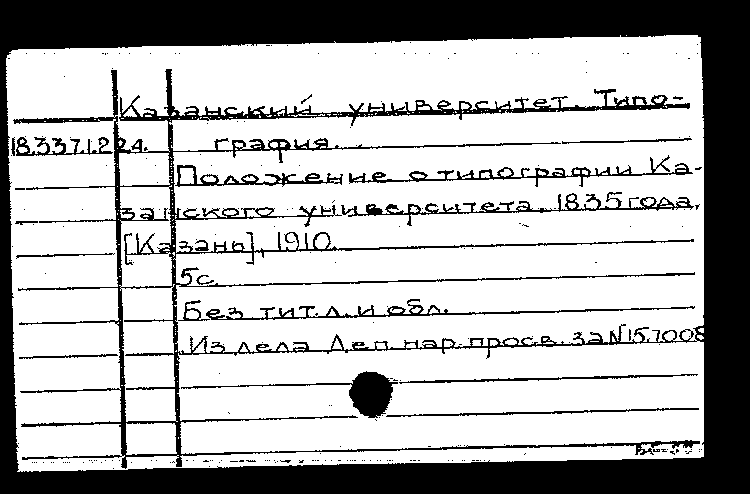 Казанский университет. Типо-
18.337.1.224. графия.
Положение о типографии Ка-
занского университета, 1835 года.
[Казань], 1910.
5с.
Без тит.л. и обл.
Из дела Деп. нар. просв. за N157008